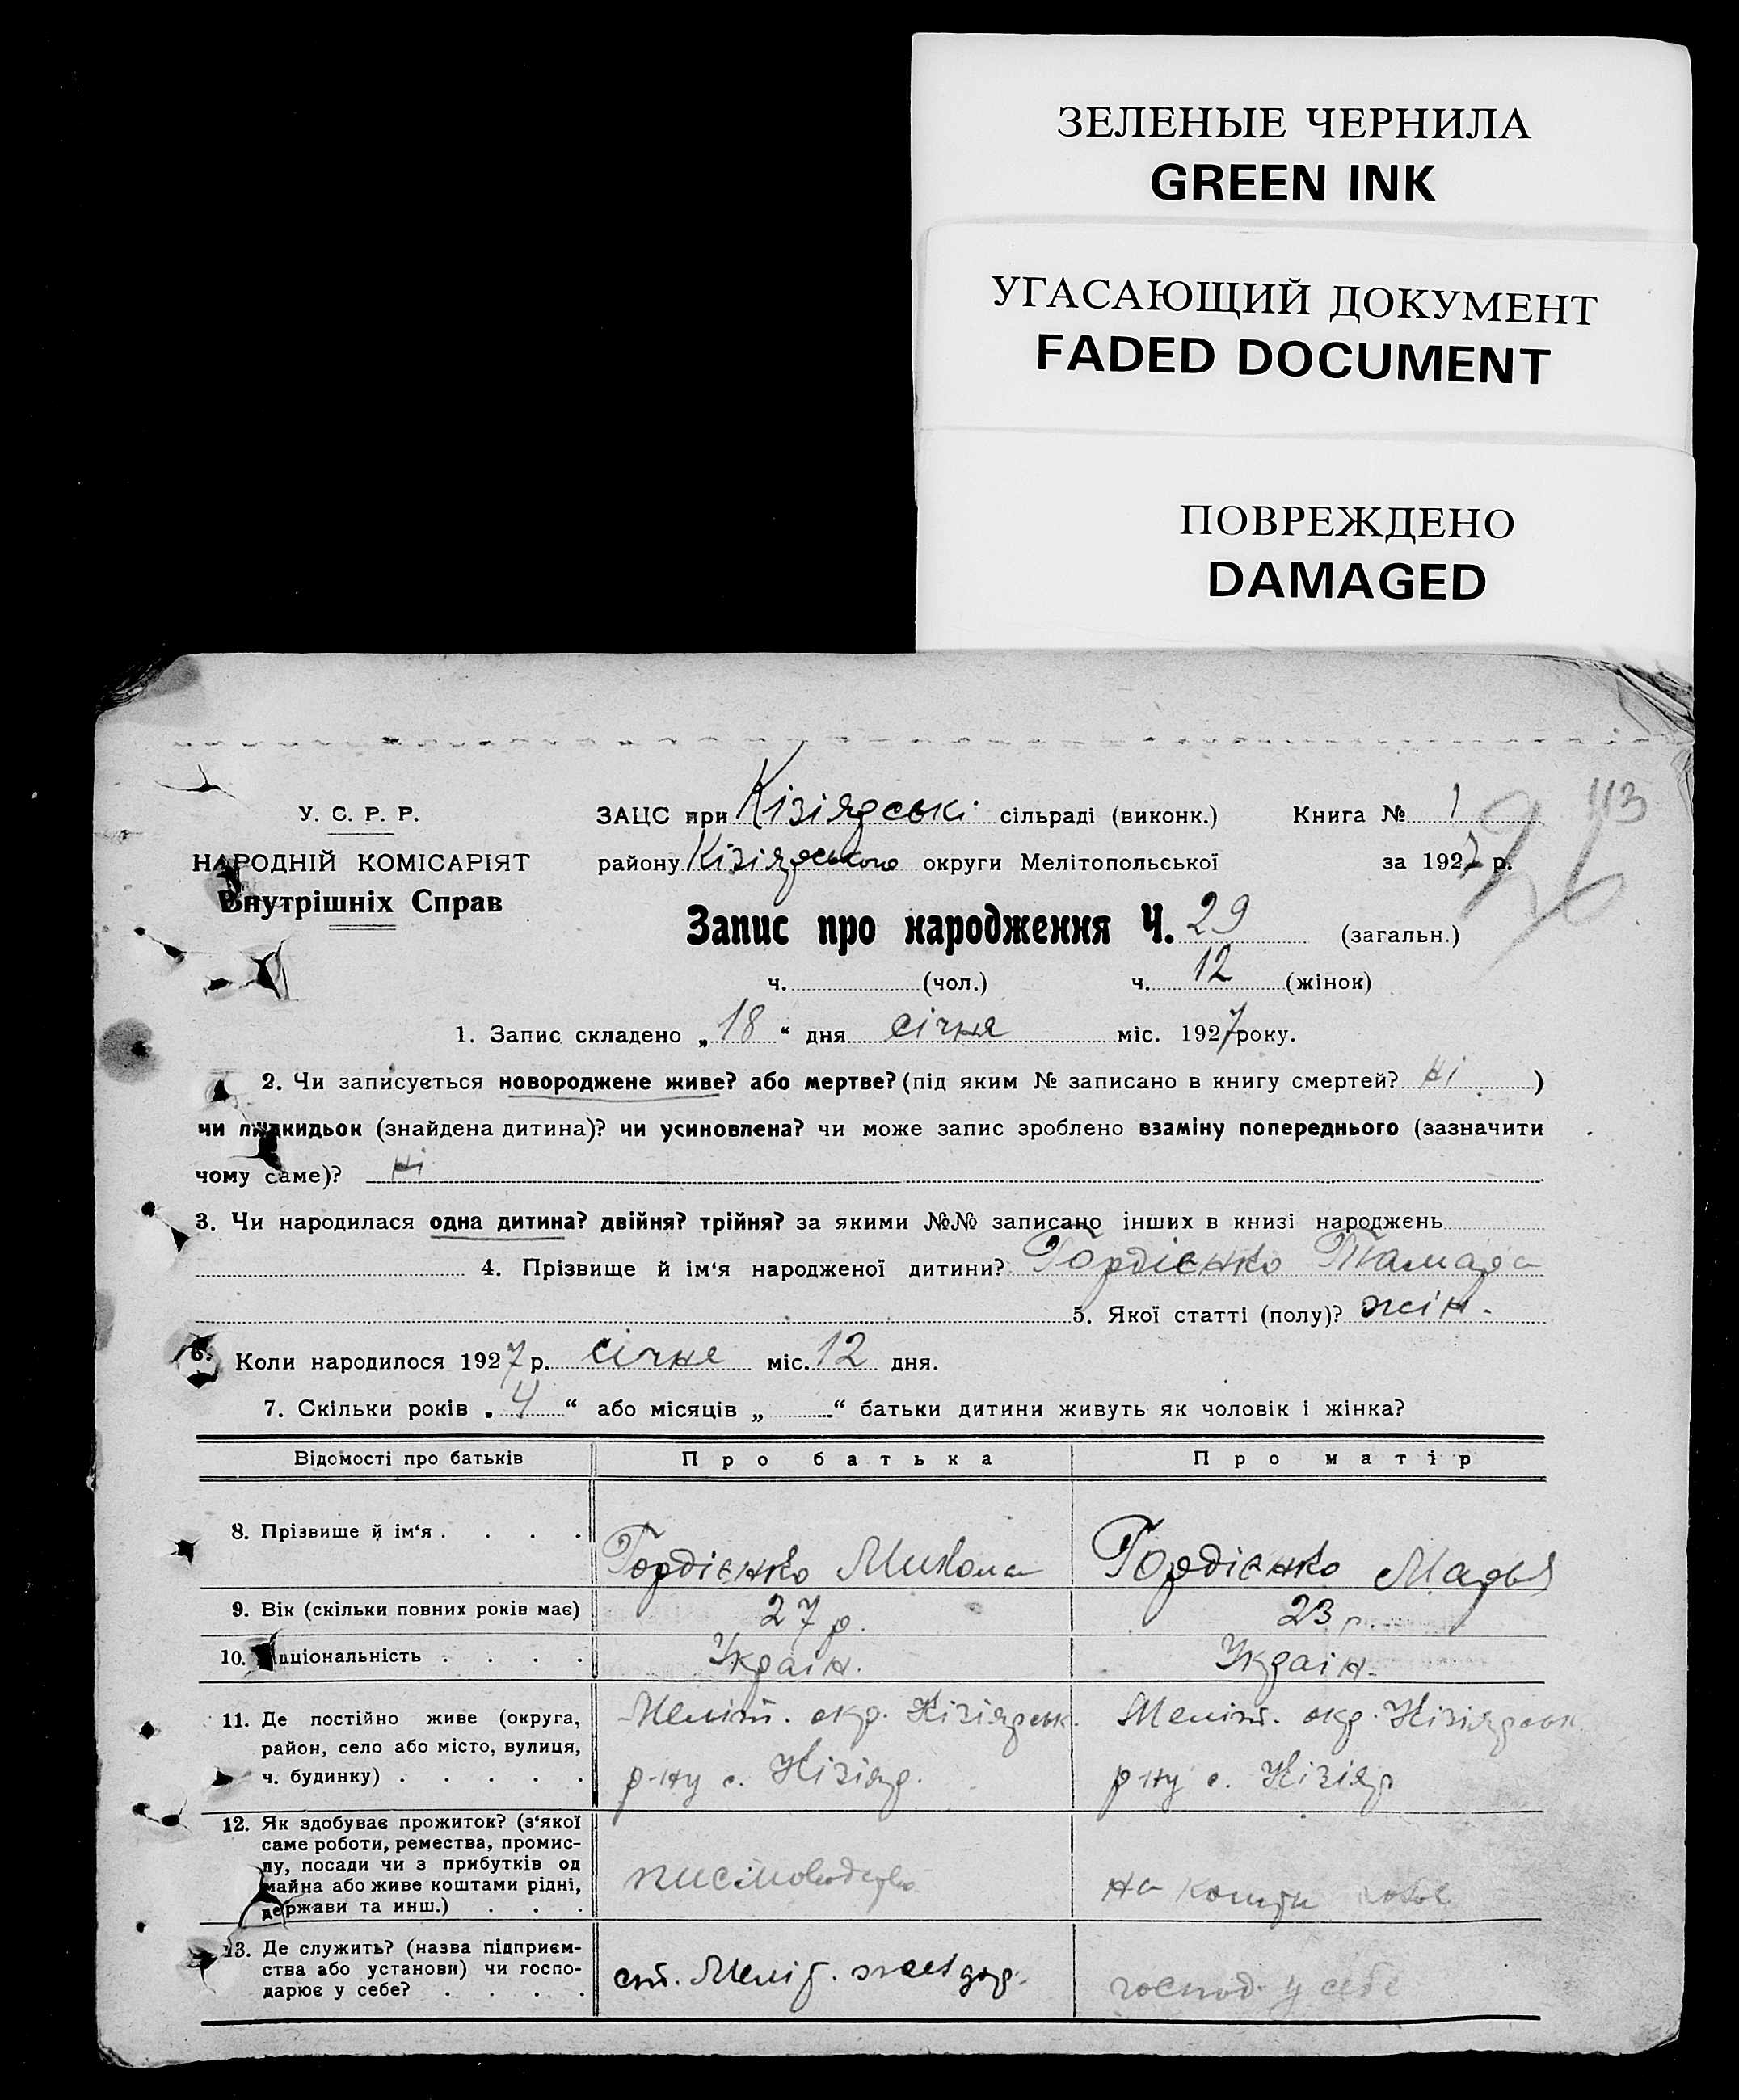 ЗЕЛЕНЫЕ ЧЕРНИЛА
GREEN INK
УГАСАЮЩИЙ ДОКУМЕНТ
FADED DOCUMENT
ПОВРЕЖДЕНО
DAMAGED
113
96
У. С. Р. Р.
НАРОДНІЙ КОМІСАРІЯТ
Внутрішніх Справ
ЗАЦС при Кізіярські сільраді (виконк.) Книга № 1
району Кізіярського округи Мелітопольської за 1927 р.
Запис про народження Ч. 29 (загальн.)
ч. (чол.) ч. 12 (жінок)
1. Запис складено „18“ дня січня міс. 1927 року.
2. Чи записується новороджене живе? або мертве? (під яким № записано в книгу смертей? ні )
чи підкидьок (знайдена дитина)? чи усиновлена? чи може запис зроблено взаміну попереднього (зазначити
чому саме)? ні
3. Чи народилася одна дитина? двійня? трійня? за якими №№ записано інших в книзі народжень
4. Прізвище й ім‘я народженої дитини? Гордієнко Тамара
5. Якої статті (полу)? жін.
6. Коли народилося 1927 р. січня міс. 12 дня.
7. Скільки років „4“ або місяців „ “ батьки дитини живуть як чоловік і жінка?
Відомості про батьків Про батька Про матір
8. Прізвище й ім‘я . . . . Гордієнко Микола Гордієнко Марья
9. Вік (скільки повних років має) 27 р. 23 р.
10. Національність . . . . Украін. Украін.
11. Де постійно живе (округа, Меліт. окр. Кізіярськ. Меліт. окр. Кізіярськ
район, село або місто, вулиця,
ч. будинку) . . . . . р-ну с. Кізіяр. р-ну с. Кізіяр
12. Як здобуває прожиток? (з‘якої
саме роботи, ремества, промис-
лу, посади чи з прибутків од
майна або живе коштами рідні,
держави та инш.) . . .
письмоводство на кошти
13. Де служить? (назва підприєм-
ства або установи) чи госпо-
дарює у себе? . . . .
ст. Меліт. господ. у себе